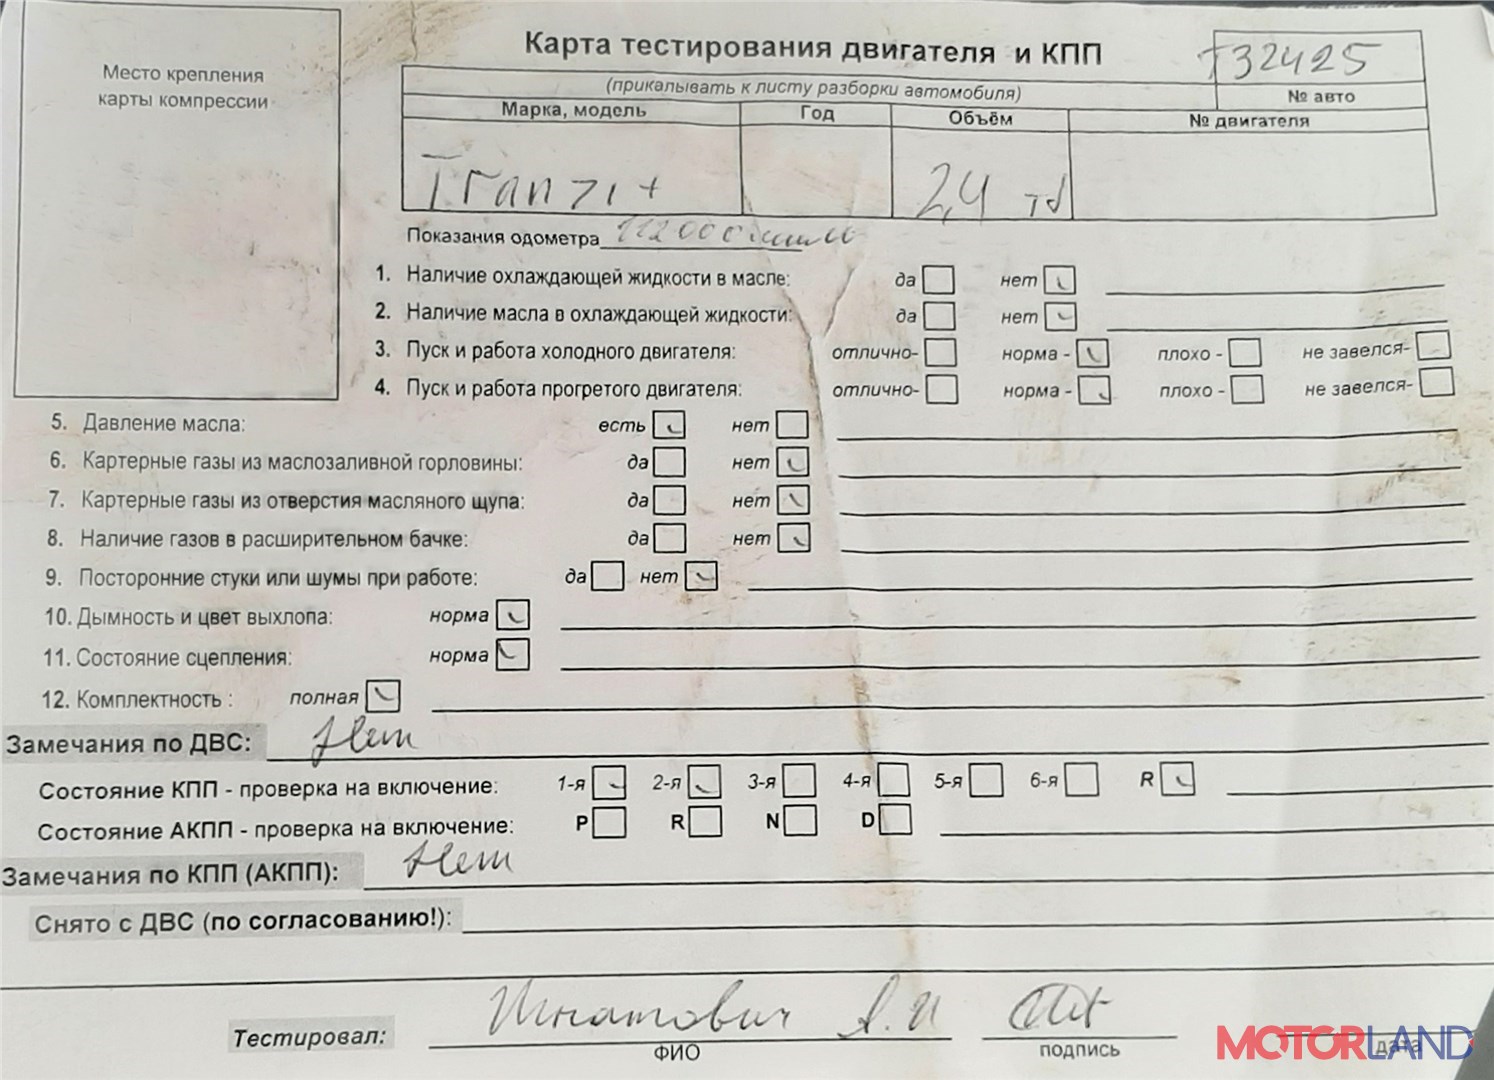 Место крепления
карты компрессии
Карта тестирования двигателя и КПП
T32425
(прикалывать к листу разборки автомобиля)
№ авто
Марка, модель Год Объём № двигателя
Tranzit 2,4 td
Показания одометра
1. Наличие охлаждающей жидкости в масле: да нет
2. Наличие масла в охлаждающей жидкости: да нет
3. Пуск и работа холодного двигателя: отлично- норма - плохо - не завелся-
4. Пуск и работа прогретого двигателя: отлично- норма - плохо - не завелся-
5. Давление масла: есть нет
6. Картерные газы из маслозаливной горловины: да нет
7. Картерные газы из отверстия масляного щупа: да нет
8. Наличие газов в расширительном бачке: да нет
9. Посторонние стуки или шумы при работе: да нет
10. Дымность и цвет выхлопа: норма
11. Состояние сцепления: норма
12. Комплектность : полная
Замечания по ДВС: Нет
Состояние КПП - проверка на включение: 1-я 2-я 3-я 4-я 5-я 6-я R
Состояние АКПП - проверка на включение: P R N D
Замечания по КПП (АКПП): Нет
Снято с ДВС (по согласованию!):
Тестировал: Игнатович А.И
ФИО подпись дата
MOTORLAND